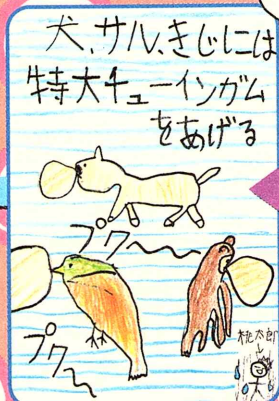 犬、サル、きじには
特大チューインガム
をあげる
プク〜
プク〜
桃太郎